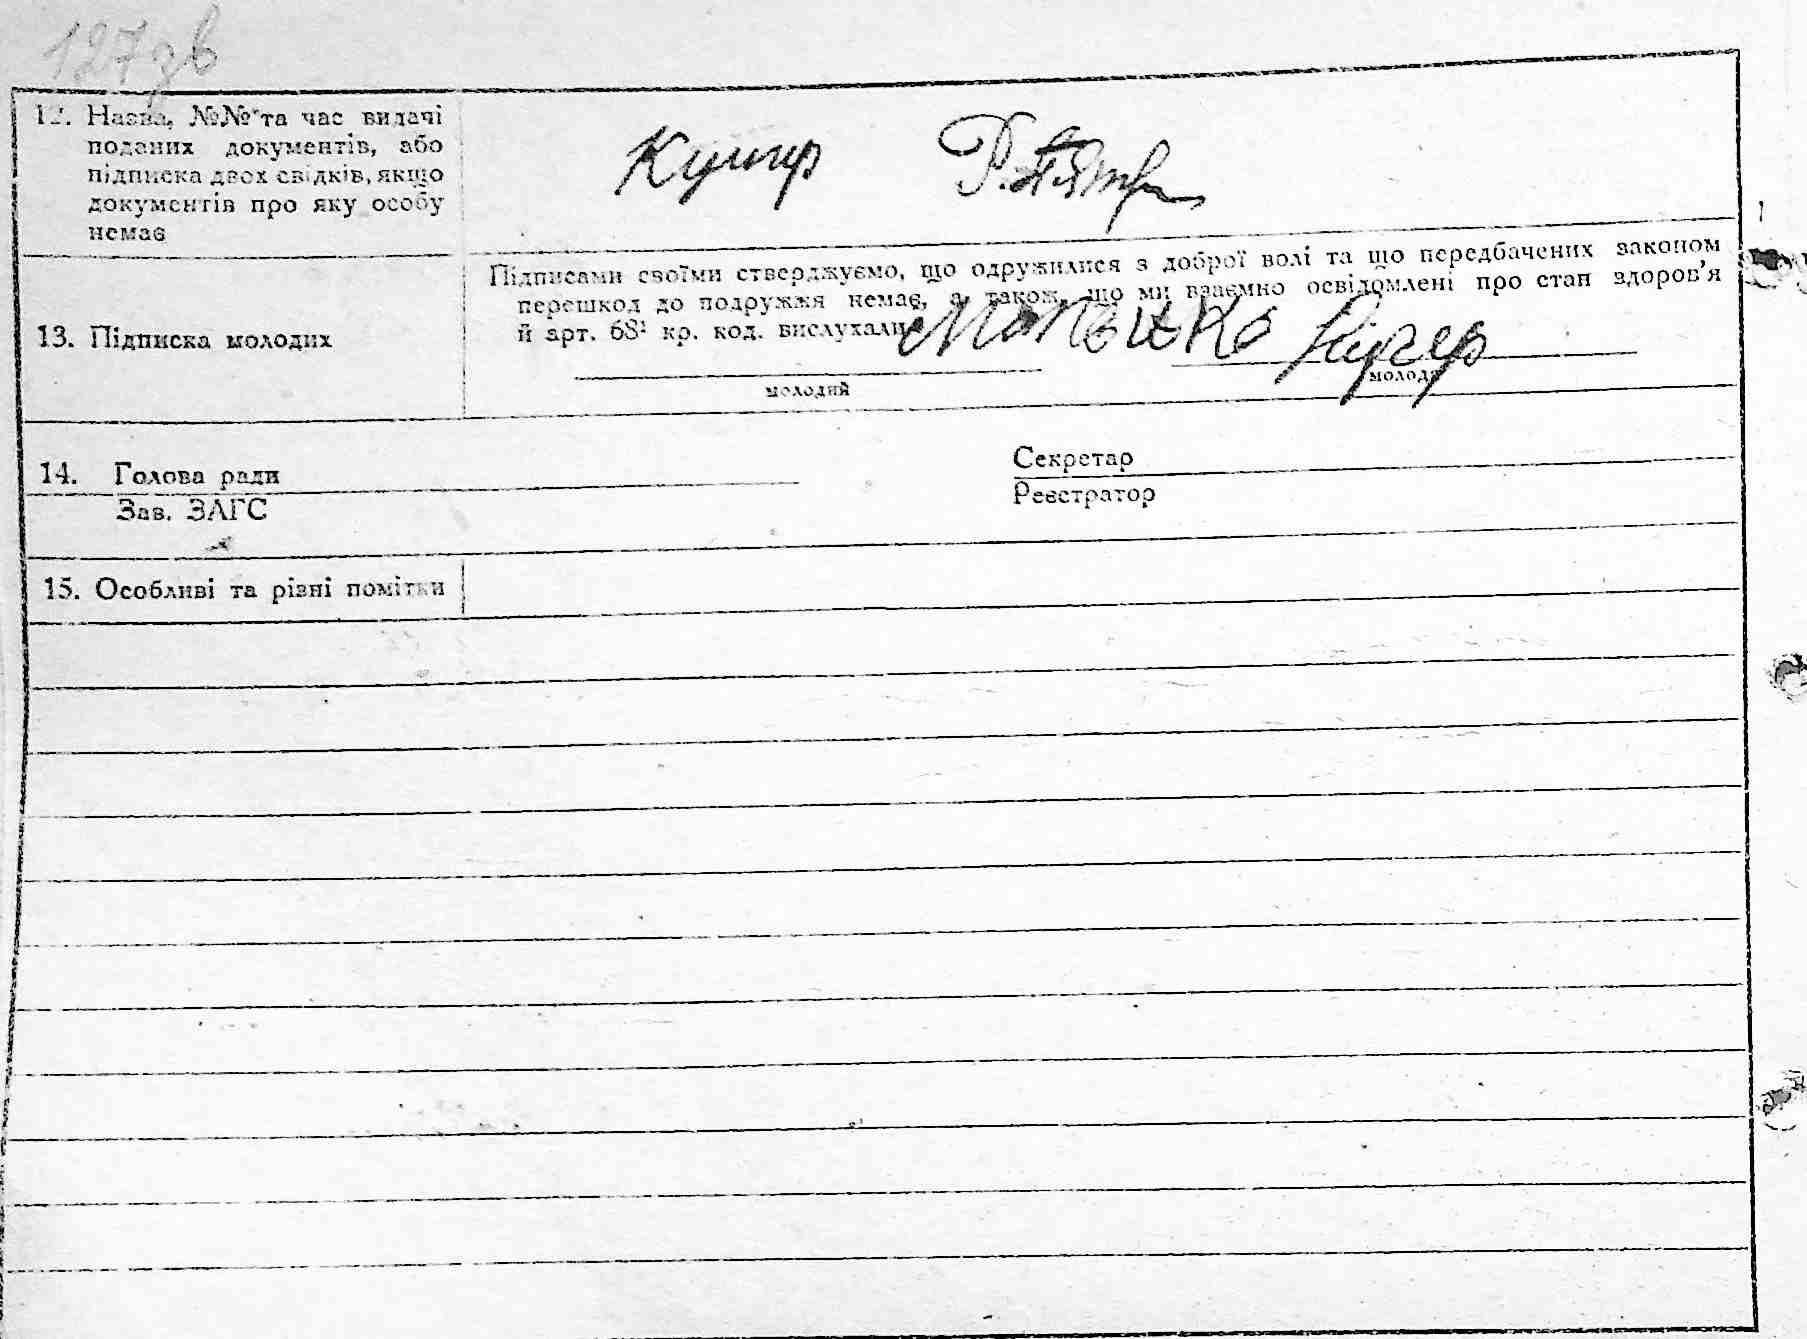 127зв
12. Назва, №№ та час видачі
поданих документів, або
підписка двох свідків, якщо
документів про яку особу
немає
Підписами своїми стверджуємо, що одружилися з доброї волі та що передбачених законом
перешкод до подружжя немає, а також, що ми взаємно освідомлені про стан здоров'я
й арт. 68¹ кр. код. вислухали
13. Підписка молодих
молодий
молода
14. Голова ради
Секретар
Зав. ЗАГС
Реєстратор
15. Особливі та різні помітки